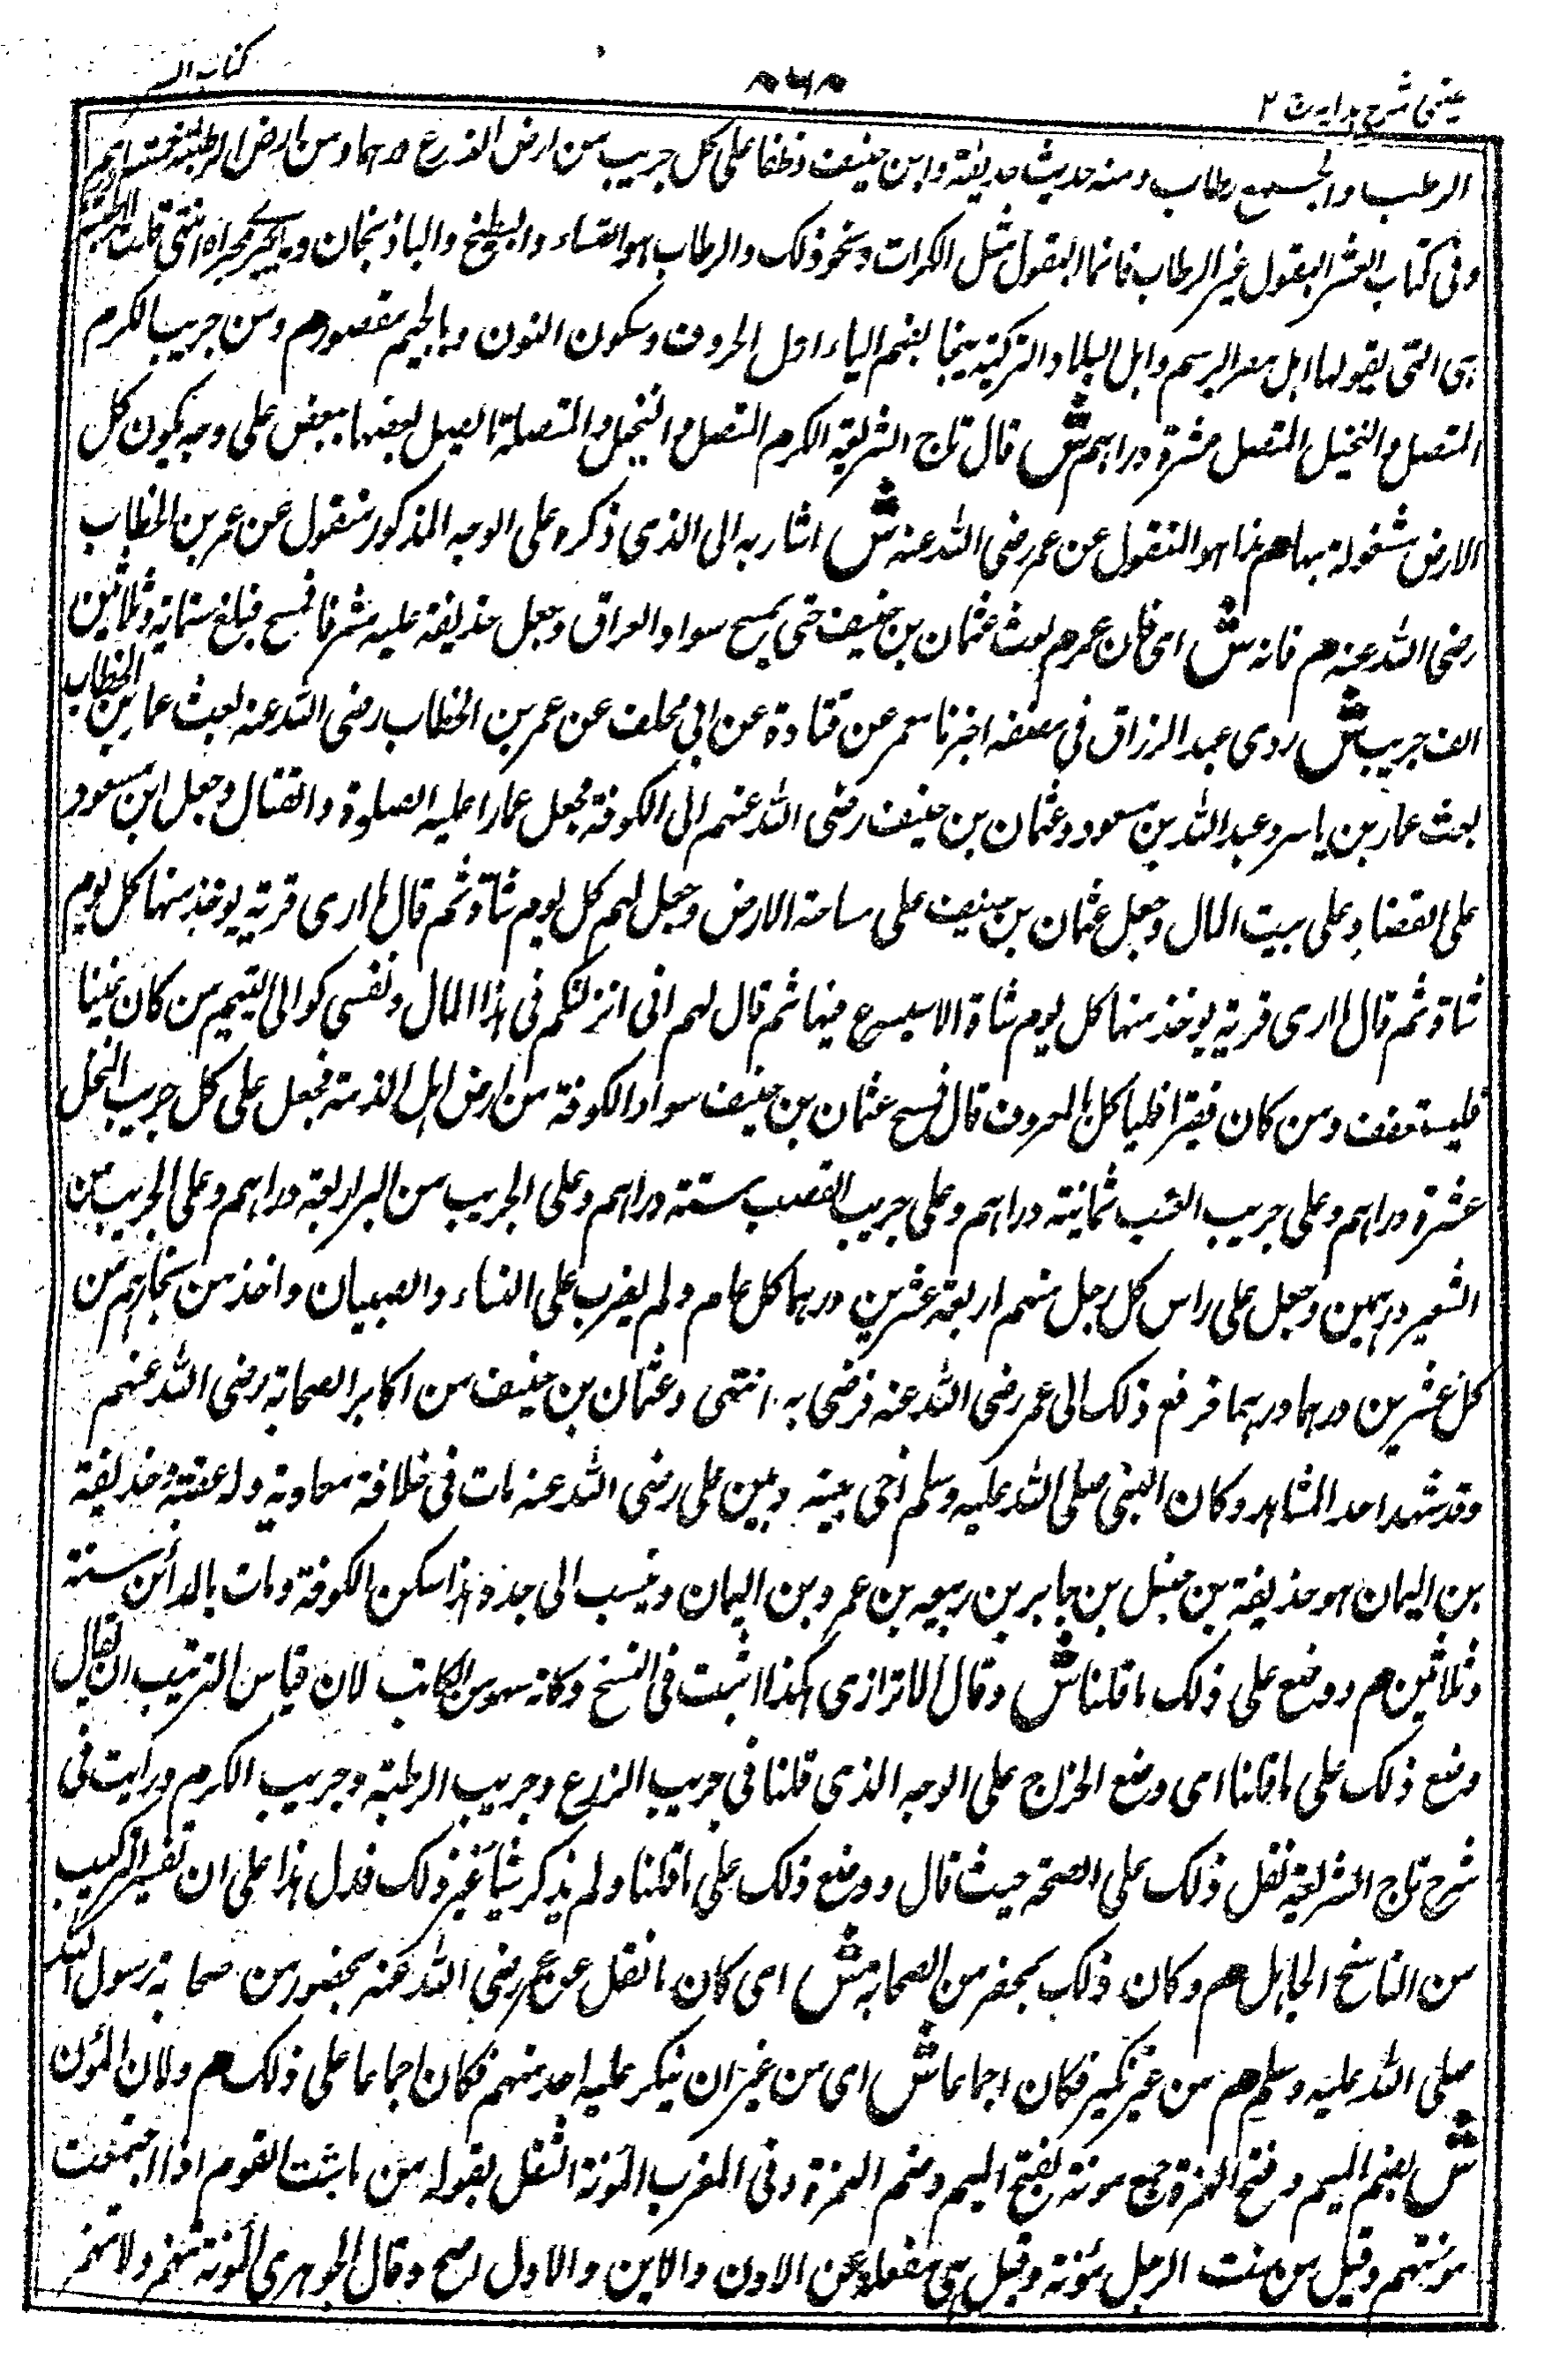 عینی شرح ہدایہ ج ٢
٨٦٨
کتاب السیر
الرطب والجمع رطاب ومنه حديث حذيفة وابن حنيف وظفا على كل جريب من ارض الزرع درهما ومن ارض الرطبة خمسة دراهم
وفى كتاب العشر البقول غير الرطاب فانما البقول مثل الكراث ونحو ذلك والرطاب هو القثاء والبطيخ والباذنجان وما يجرى مجراه انتهى قلت الرطبة
هى التى يقولها اهل مصر البرسم واهل البلاد التركية ينجا بضم الياء اول الحروف وسكون النون وبالجيم مقصورم ومن جريب الكرم
المتصل والنخيل المتصل عشرة دراهم ش قال تاج الشريعة الكرم المتصل والنخيل والمتصلة ما يصل بعضها ببعض على وجه يكون كل
الارض مشغولة بها م هذا هو المنقول عن عمر رضى الله عنه ش اشار به الى الذى ذكره على الوجه المذكور منقول عن عمر بن الخطاب
رضى الله عنه م فانه ش اى فان عمر م بعث عثمان بن حنيف حتى يمسح سواد العراق وجعل حذيفة عليه مشرفا فمسح فبلغ ستماية وثلاثين
الف جريب ش روى عبد الرزاق فى مصنفه اخبرنا معمر عن قتادة عن ابى مجلف عن عمر بن الخطاب رضى الله عنه بعث عمار بن الخطاب
بعث عمار بن ياسر وعبد الله بن مسعود وعثمان بن حنيف رضى الله عنهم الى الكوفة فجعل عمارا عليه الصلوة والقتال وجعل ابن مسعود
على القضاء وعلى بيت المال وجعل عثمان بن حنيف على مساحة الارض وجعل لهم كل يوم شاة وثم قال ما ارى قرية يوخذ منها كل يوم
شاة ثم قال ما ارى قرية يوخذ منها كل يوم شاة الا سيسرع فيها ثم قال لهم انى انزلتكم فى هذا المال ونفسى كوالى اليتيم من كان غنيا
فليستعفف ومن كان فقيرا فلياكل بالمعروف قال فمسح عثمان بن حنيف سواد الكوفة من ارض اهل الذمة فجعل على كل جريب النخل
عشرة دراهم وعلى جريب العنب ثمانية دراهم وعلى جريب القصب ستة دراهم وعلى الجريب من البر اربعة دراهم وعلى الجريب من
الشعير درهمين وجعل على راس كل رجل منهم اربعة عشرين درهما كل عام ولم يضرب على النساء والصبيان واخذ من تجارهم من
كل عشرين درهما درهما فرفع ذلك الى عمر رضى الله عنه فرضى به انتهى وعثمان بن حنيف من اكابر الصحابة رضى الله عنهم
وقد شهد احد المشاهد وكان النبى صلى الله عليه وسلم اخى بينه وبين على رضى الله عنه مات فى خلافة معاوية وله عقبة وحذيفة
بن اليمان هو حذيفة بن حنبل بن جابر بن ربيعه بن عمرو بن اليمان وينسب الى جده وهذا سكن الكوفة ومات بالمدائن سنة
وثلاثين م ووضع على ذلك ما قلنا ش وقال الاترازى هكذا اثبت فى النسخ وكانه سهو من الكاتب لان قياس الترتيب ان يقال
وضع ذلك على ما قلنا اى وضع الخراج على الوجه الذى قلنا فى جريب الزرع وجريب الرطبة وجريب الكرم ورايت فى
شرح تاج الشريعة نقل ذلك على الصحة حيث قال ووضع ذلك على ما قلنا ولم يذكر شيأ غير ذلك فدل هذا على ان تغيير التركيب
من الناسخ الجاهل م وكان ذلك بمحضر من الصحابة ش اى كان ما نقل عن عمر رضى الله عنه بحضور من صحابة رسول الله
صلى الله عليه وسلم م من غير نكير فكان اجماعا ش اى من غير ان ينكر عليه احد منهم فكان اجماعا على ذلك م ولان المؤن
ش بضم الميم وفتح الهمزة جمع مونة بفتح الميم وضم الهمزة وفى المغرب المؤنة الثقل بقوله من مانت القوم اذا اجتمعت
مونتهم وقيل من منت الرجل مئونة وقيل هى مفعلة من الاون والاين والاول اصح وقال الجوهرى المونة تهمز ولا تهمز